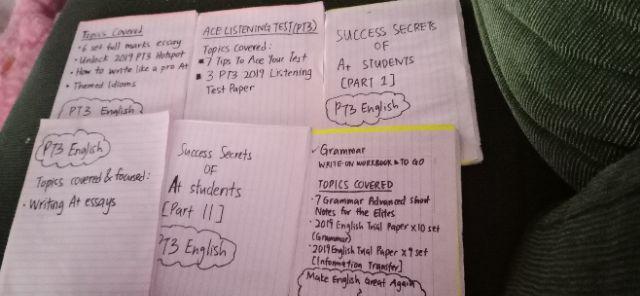 Topics Covered
• 6 set full marks essay
• Unlock 2019 PT3 Hotspot
• How to write like a pro At
• Themed Idioms
PT3 English
ACE LISTENING TEST (PT3)
Topics covered:
• 7 Tips To Ace Your Test
• 3 PT3 2019 Listening
Test Paper
SUCCESS SECRETS
OF
A+ STUDENTS
[PART 1]
PT3 English
PT3 English
Topics covered & focused:
• Writing A+ essays
Success Secrets
OF
A+ students
[Part II]
PT3 English
✓ Grammar
WRITE-ON WORKBOOK & TO GO
TOPICS COVERED
• 7 Grammar Advanced Short
Notes for the Elites
• 2019 English Trial Paper x 10 set
(Grammar)
• 2019 English Trial Paper x 9 set
[Information Transfer]
Make English Great Again